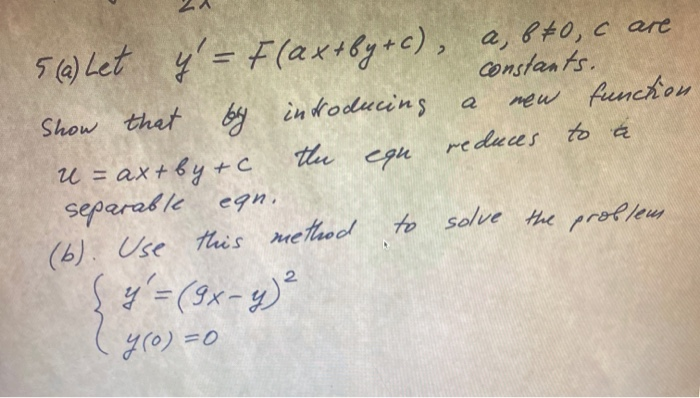 5(a) Let y' = F(ax+by+c), a, b≠0, c are constants.
Show that by introducing a new function
u = ax+by+c the eqn reduces to a
separable eqn.
(b). Use this method to solve the problem
{ y' = (9x-y)²
y(0) = 0